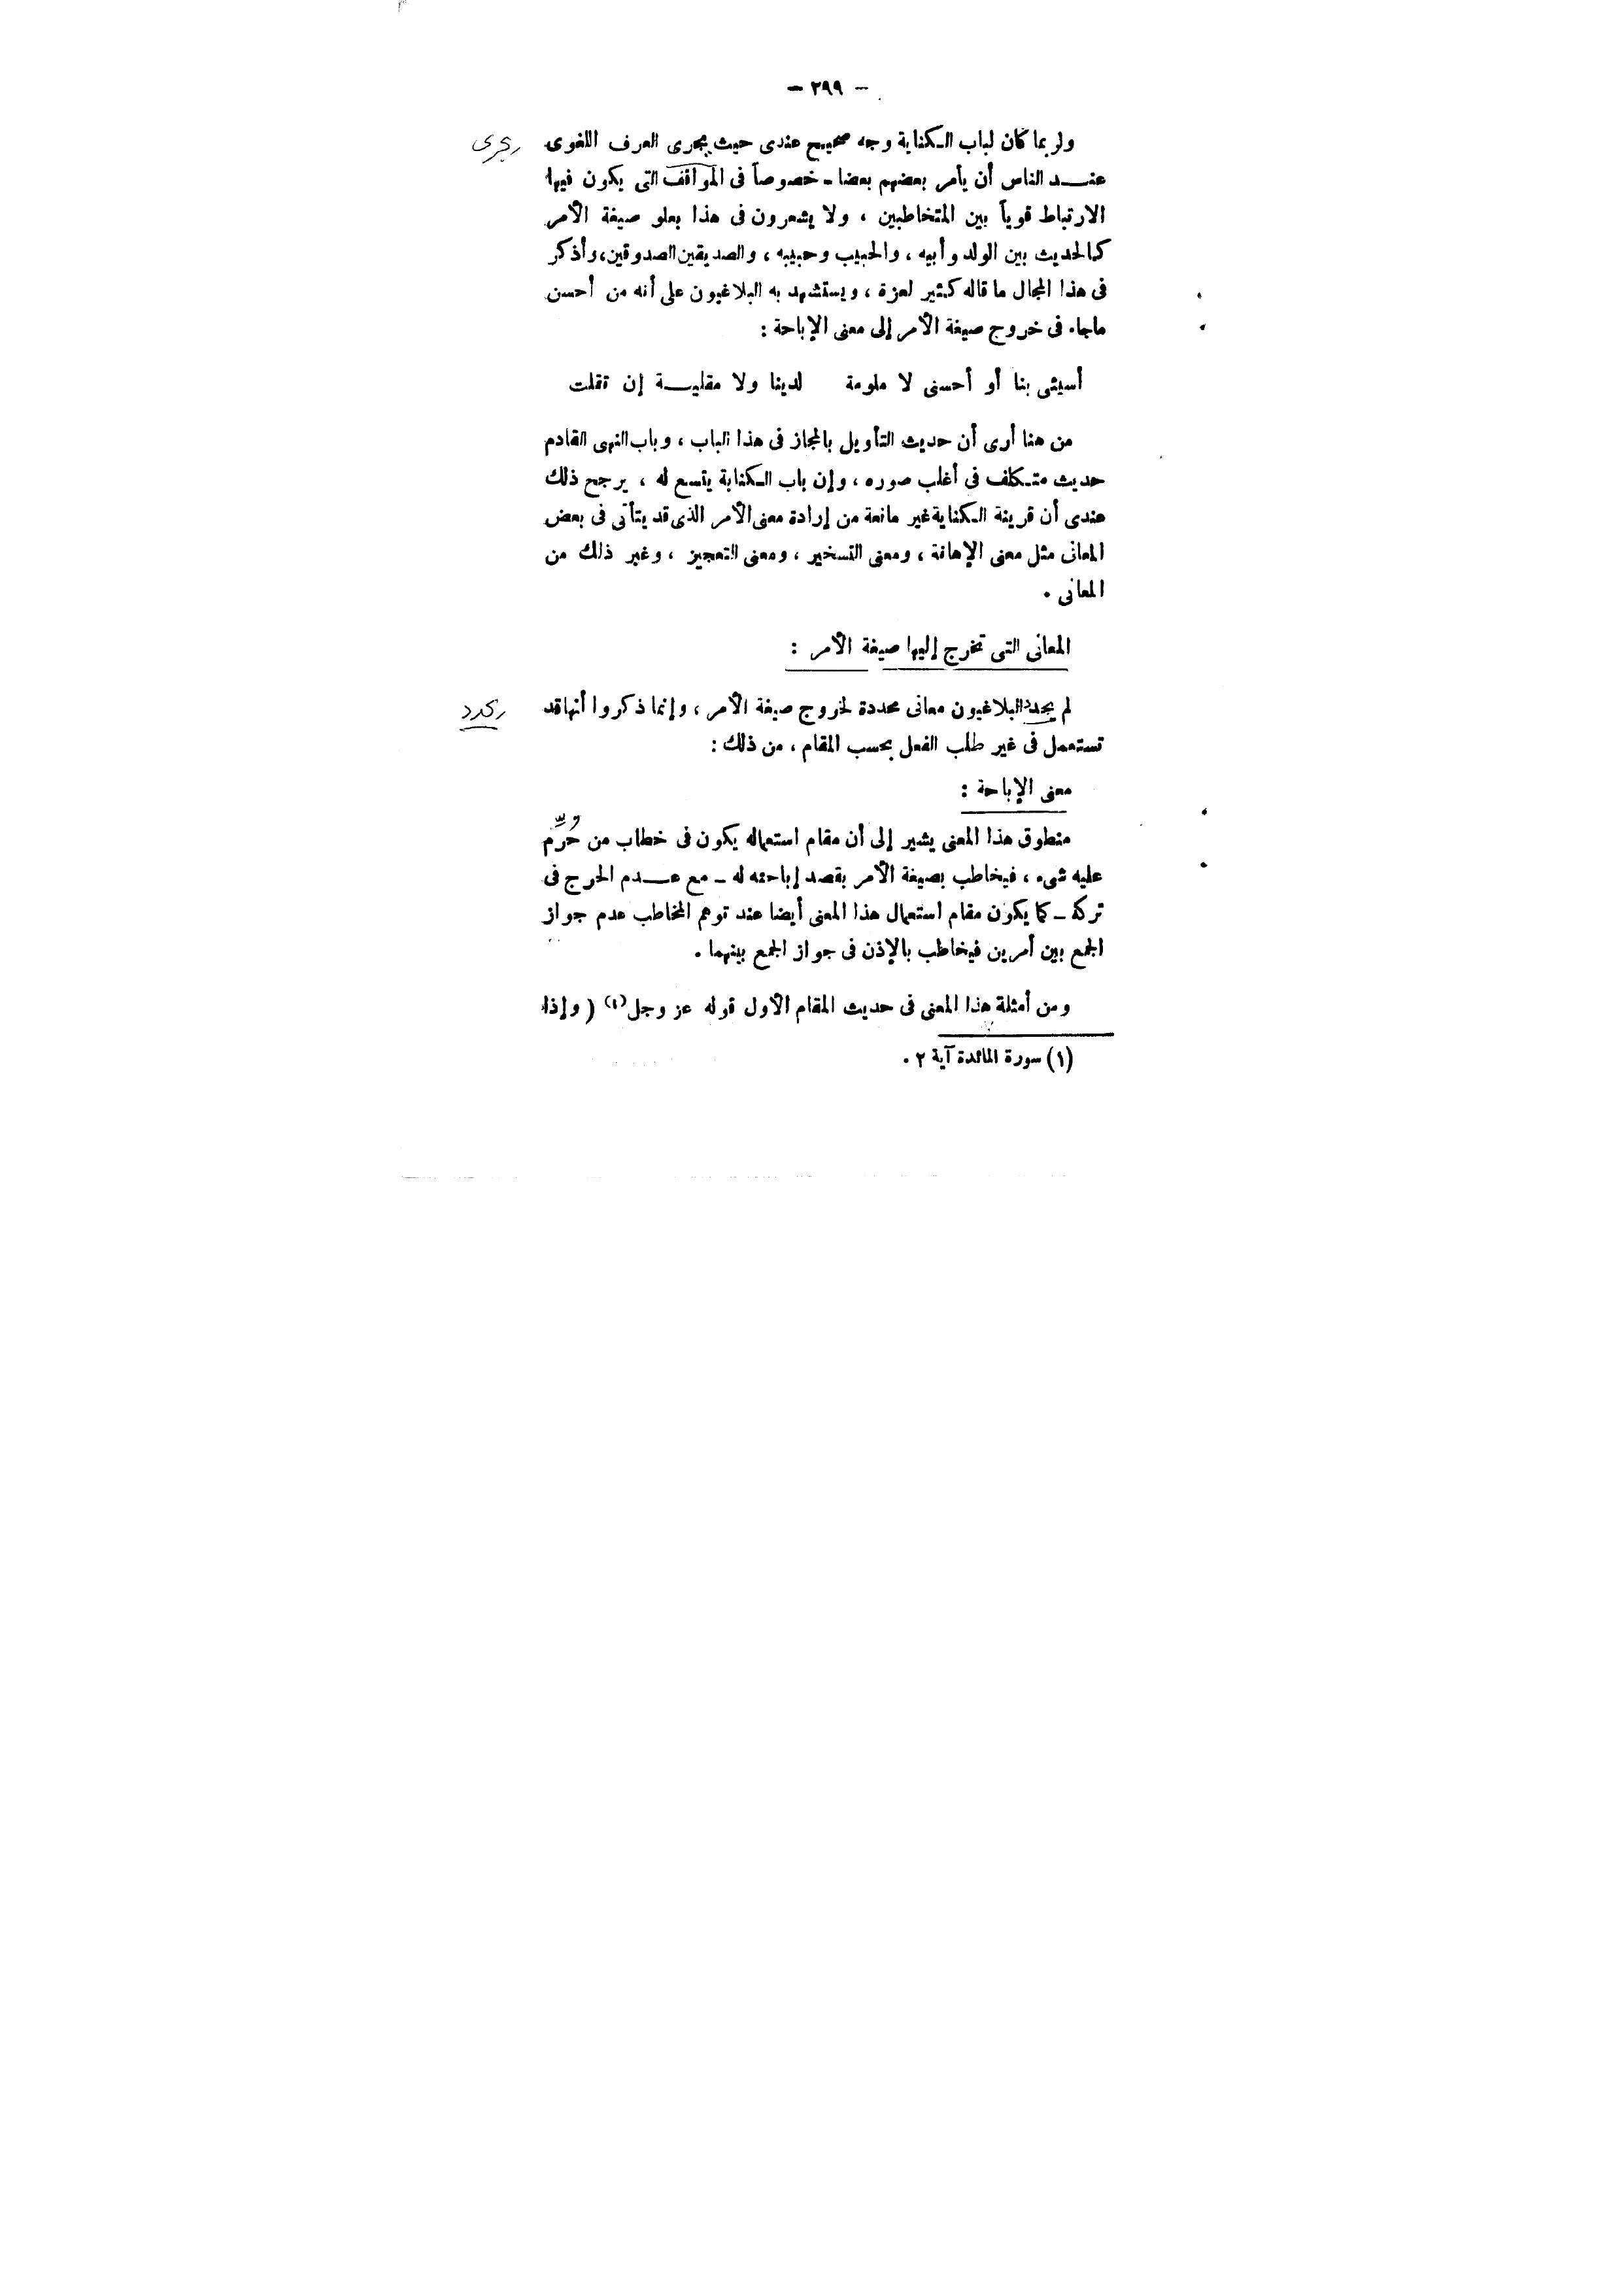 — ٢٩٩ —
ولربما كان لباب الكناية وجه صحيح عندى حيث يجرى العرف اللغوى
يجرى
عند الناس أن يأمر بعضهم بعضا ـ خصوصاً فى المواقف التى يكون فيها
الارتباط قوياً بين المتخاطبين ، ولا يشعرون فى هذا بعلو صيغة الأمر
كالحديث بين الولد وأبيه ، والحبيب وحبيبه ، والصديقين الصدوقين، وأذكر
فى هذا المجال ما قاله كثير لعزة ، ويستشهد به البلاغيون على أنه من أحسن
ماجاء فى خروج صيغة الأمر إلى معنى الإباحة :
أسيئى بنا أو أحسنى لا ملومة لدينا ولا مقلية إن تقلت
من هنا أرى أن حديث التأويل بالمجاز فى هذا الباب ، وباب النهى القادم
حديث متكلف فى أغلب صوره ، وإن باب الكناية يتسع له ، يرجح ذلك
عندى أن قرينة الكناية غير مانعة من إرادة معنى الأمر الذى قد يتأتى فى بعض
المعانى مثل معنى الإهانة ، ومعنى التسخير ، ومعنى التعجيز ، وغير ذلك من
المعانى .
المعانى التى تخرج إليها صيغة الأمر :
لم يحدد البلاغيون معانى محددة لخروج صيغة الأمر ، وإنما ذكروا أنها قد
يحدد
تستعمل فى غير طلب الفعل بحسب المقام ، من ذلك :
معنى الإباحة :
منطوق هذا المعنى يشير إلى أن مقام استعماله يكون فى خطاب من حُرِّم
عليه شىء ، فيخاطب بصيغة الأمر بقصد إباحته له ـ مع عدم الحرج فى
تركه ـ كما يكون مقام استعمال هذا المعنى أيضا عند توهم المخاطب عدم جواز
الجمع بين أمرين فيخاطب بالإذن فى جواز الجمع بينهما .
ومن أمثلة هذا المعنى فى حديث المقام الأول قوله عز وجل(١) ( وإذا
(١) سورة المائدة آية ٢ .